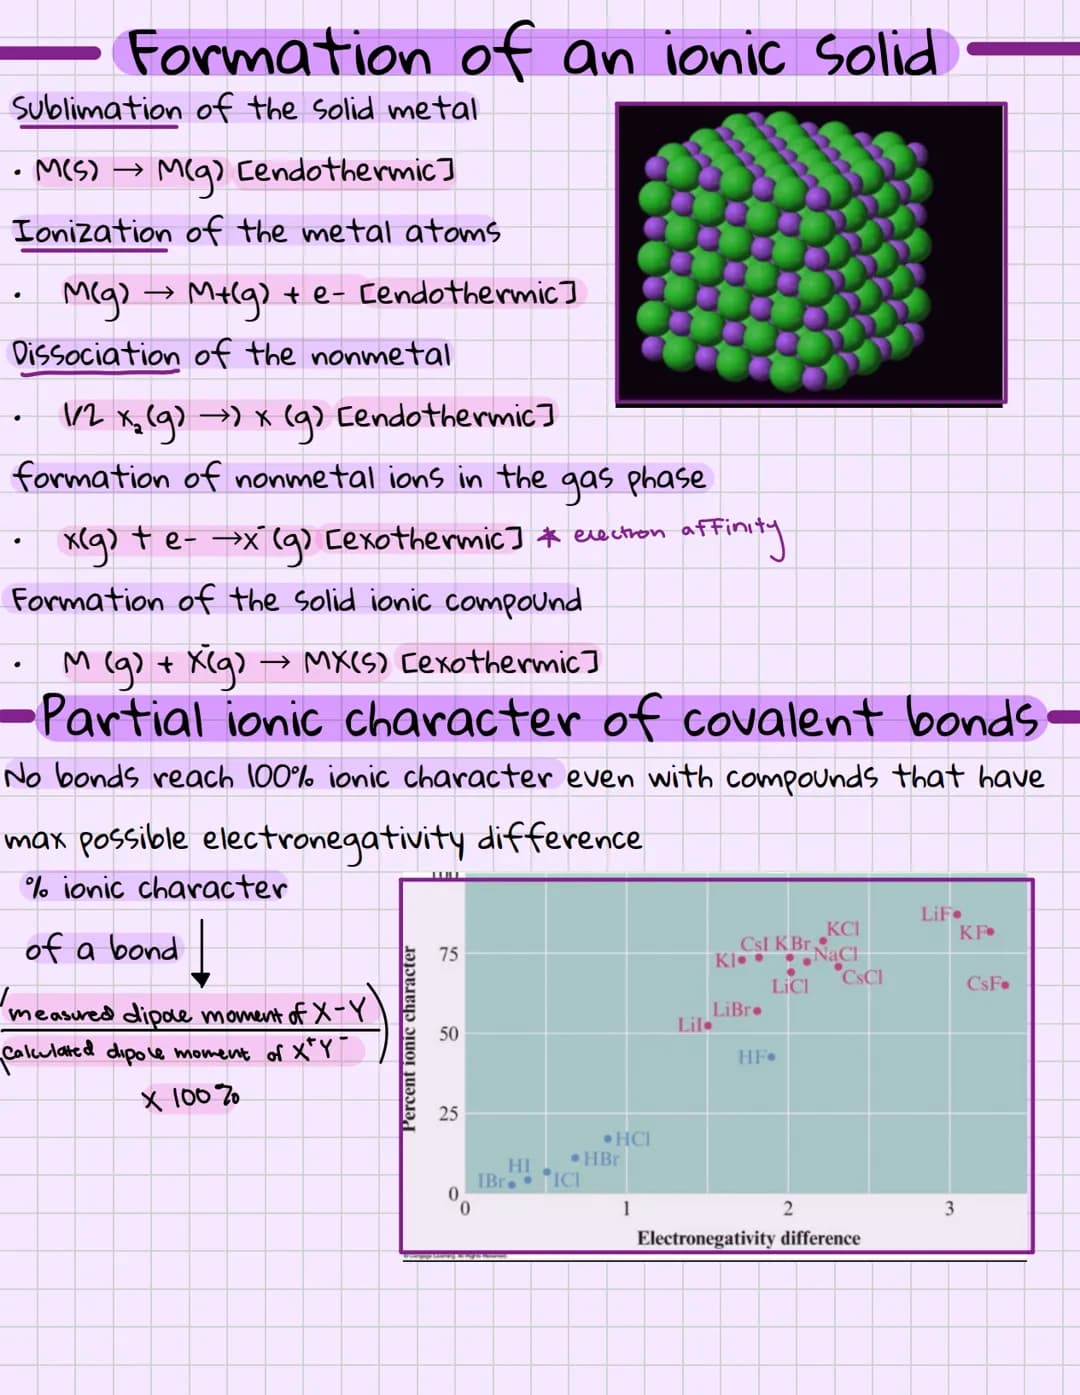 Formation of an ionic solid
Sublimation of the solid metal
• M(s) → M(g) [endothermic]
Ionization of the metal atoms
• M(g) → M+(g) + e- [endothermic]
Dissociation of the nonmetal
• 1/2 x₂(g) →) x (g) [endothermic]
formation of nonmetal ions in the gas phase
• x(g) + e- →x⁻(g) [exothermic] * electron affinity
Formation of the solid ionic compound
• M (g) + X⁻(g) → MX(s) [exothermic]
Partial ionic character of covalent bonds
No bonds reach 100% ionic character even with compounds that have
max possible electronegativity difference
% ionic character
of a bond ↓
(measured dipole moment of X-Y
calculated dipole moment of X⁺Y⁻)
x 100%
100
75
50
25
0
Percent ionic character
LiF
KF
CsF
KCl
CsI KBr
NaCl
KI
CsCl
LiCl
LiBr
LiI
HF
HCl
HBr
HI
ICl
IBr
0 1 2 3
Electronegativity difference
© Cengage Learning. All Rights Reserved.